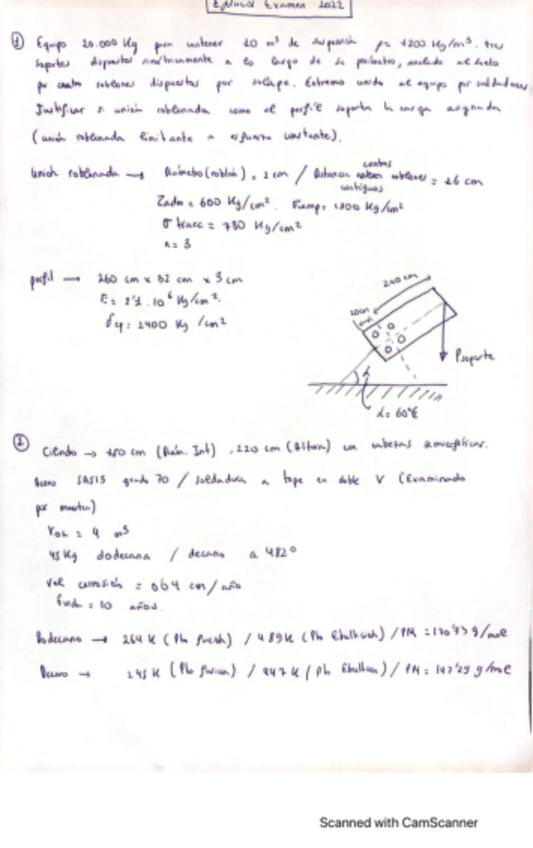 Ejercicio Examen 2022
① Equipo 20.000 Kg para contener 10 m³ de suspensión ρ= 1200 Kg/m³. tres
soportes dispuestos simétricamente a lo largo de su perímetro, anclado al suelo
por cuatro roblones dispuestos por solape. Extremo unido al equipo por soldadura.
Justificar si unión roblonada como el perfil soporta la carga asignada
(unión roblonada limitante a esfuerzo cortante).
Unión roblonada → Diámetro (roblón) = 2 cm / Distancia centros roblones contiguos = 16 cm
= 600 Kg/cm². = 1200 Kg/cm²
σ tracc = 780 Kg/cm²
n = 3
perfil → 260 cm x 32 cm x 3 cm
E = 2'1 · 10⁶ Kg/cm².
= 2400 Kg/cm²
240 cm
20cm
P soporte
α
α = 60º
② Cilindro → 150 cm (Diám. Int), 220 cm (Altura) con cabezas semiesféricas.
Acero SA515 grado 70 / soldadura a tope en doble V (Examinado
por muestreo)
= 4 m³
45 Kg dodecano / decano a 482º
Vel corrosión = 0'04 cm/año
= 10 años.
Dodecano → 264 K (Pto fusión) / 489 K (Pto Ebullición) / PM = 170'33 g/mol
Decano → 245 K (Pto fusión) / 447 K (Pto Ebullición) / PM = 142'29 g/mol
Scanned with CamScanner